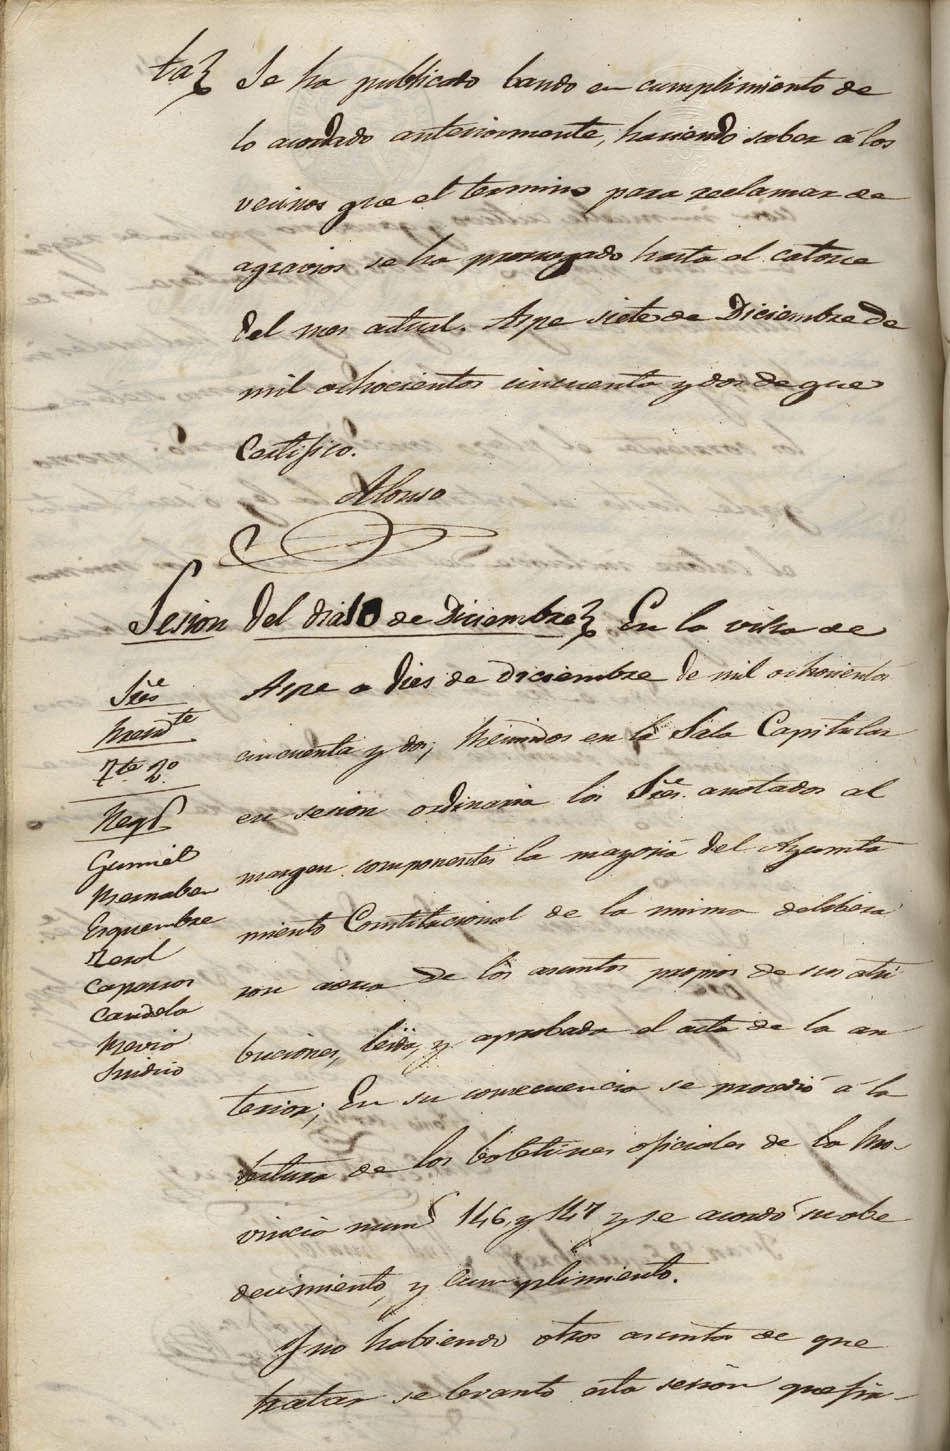 ta} Se ha publicado bando en cumplimiento de
lo acordado anteriormente, haciendo saber á los
vecinos que el termino para reclamar de
agravios se ha prorrogado hasta el catorce
del mes actual. Aspe siete de Diciembre de
mil ochocientos cincuenta y dos de que
Certifico.
Alonso
Sesion del dia 10 de Diciembre} En la villa de
Aspe a dies de Diciembre de mil ochocientos
cincuenta y dos; Reunidos en la Sala Capitular
en sesion ordinaria los Sres. anotados al
margen componentes la mayoria del Ayunta
miento Constitucional de la misma delibera
ron acerca de los asuntos propios de sus atri
buciones, leida, y aprobada el acta de la an
terior; En su consecuencia se procedió á la
lectura de los boletines oficiales de la Pro-
vincia nums 146, y 147 y se acordó su obe
decimiento, y cumplimiento.
Y no habiendo otros asuntos de que
tratar se levanto esta sesion que fir-
Sres
Presidte
Tte 2º
Regs
Gumiel
Bernabeu
Esquembre
Zerol
Caparros
Candela
Sindico